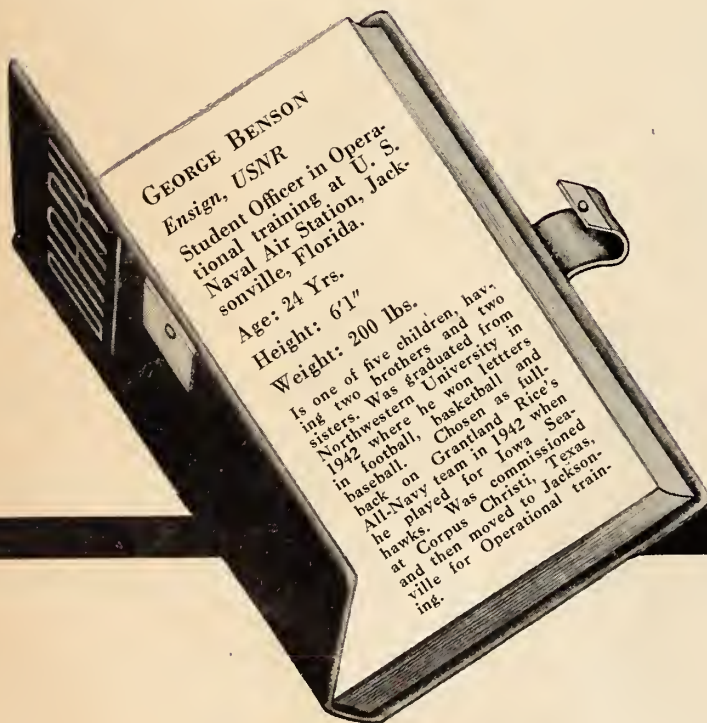 DIARY
GEORGE BENSON
Ensign, USNR
Student Officer in Opera-
tional training at U. S.
Naval Air Station, Jack-
sonville, Florida.
Age: 24 Yrs.
Height: 6'1"
Weight: 200 lbs.
Is one of five children, hav-
ing two brothers and two
sisters. Was graduated from
Northwestern University in
1942 where he won lettters
in football, basketball and
baseball. Chosen as full-
back on Grantland Rice's
All-Navy team in 1942 when
he played for Iowa Sea-
hawks. Was commissioned
at Corpus Christi, Texas,
and then moved to Jackson-
ville for Operational train-
ing.